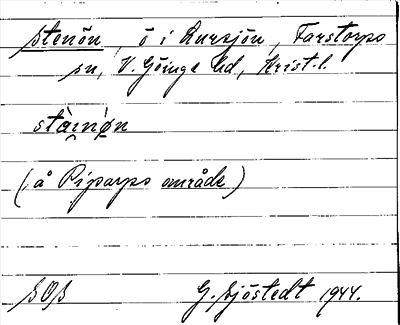 Stenön, ö i Lursjön, Farstorps
sn, V. Göinge hd, Krist. l.
stàinǿn
(å Pigarps område)
SOS G. Sjöstedt 1944.